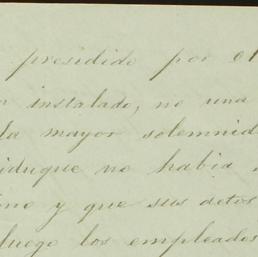 presidido por el
instalado, no una
la mayor solemnid
iduque no habia
ne y que sus detos
luego los empleados